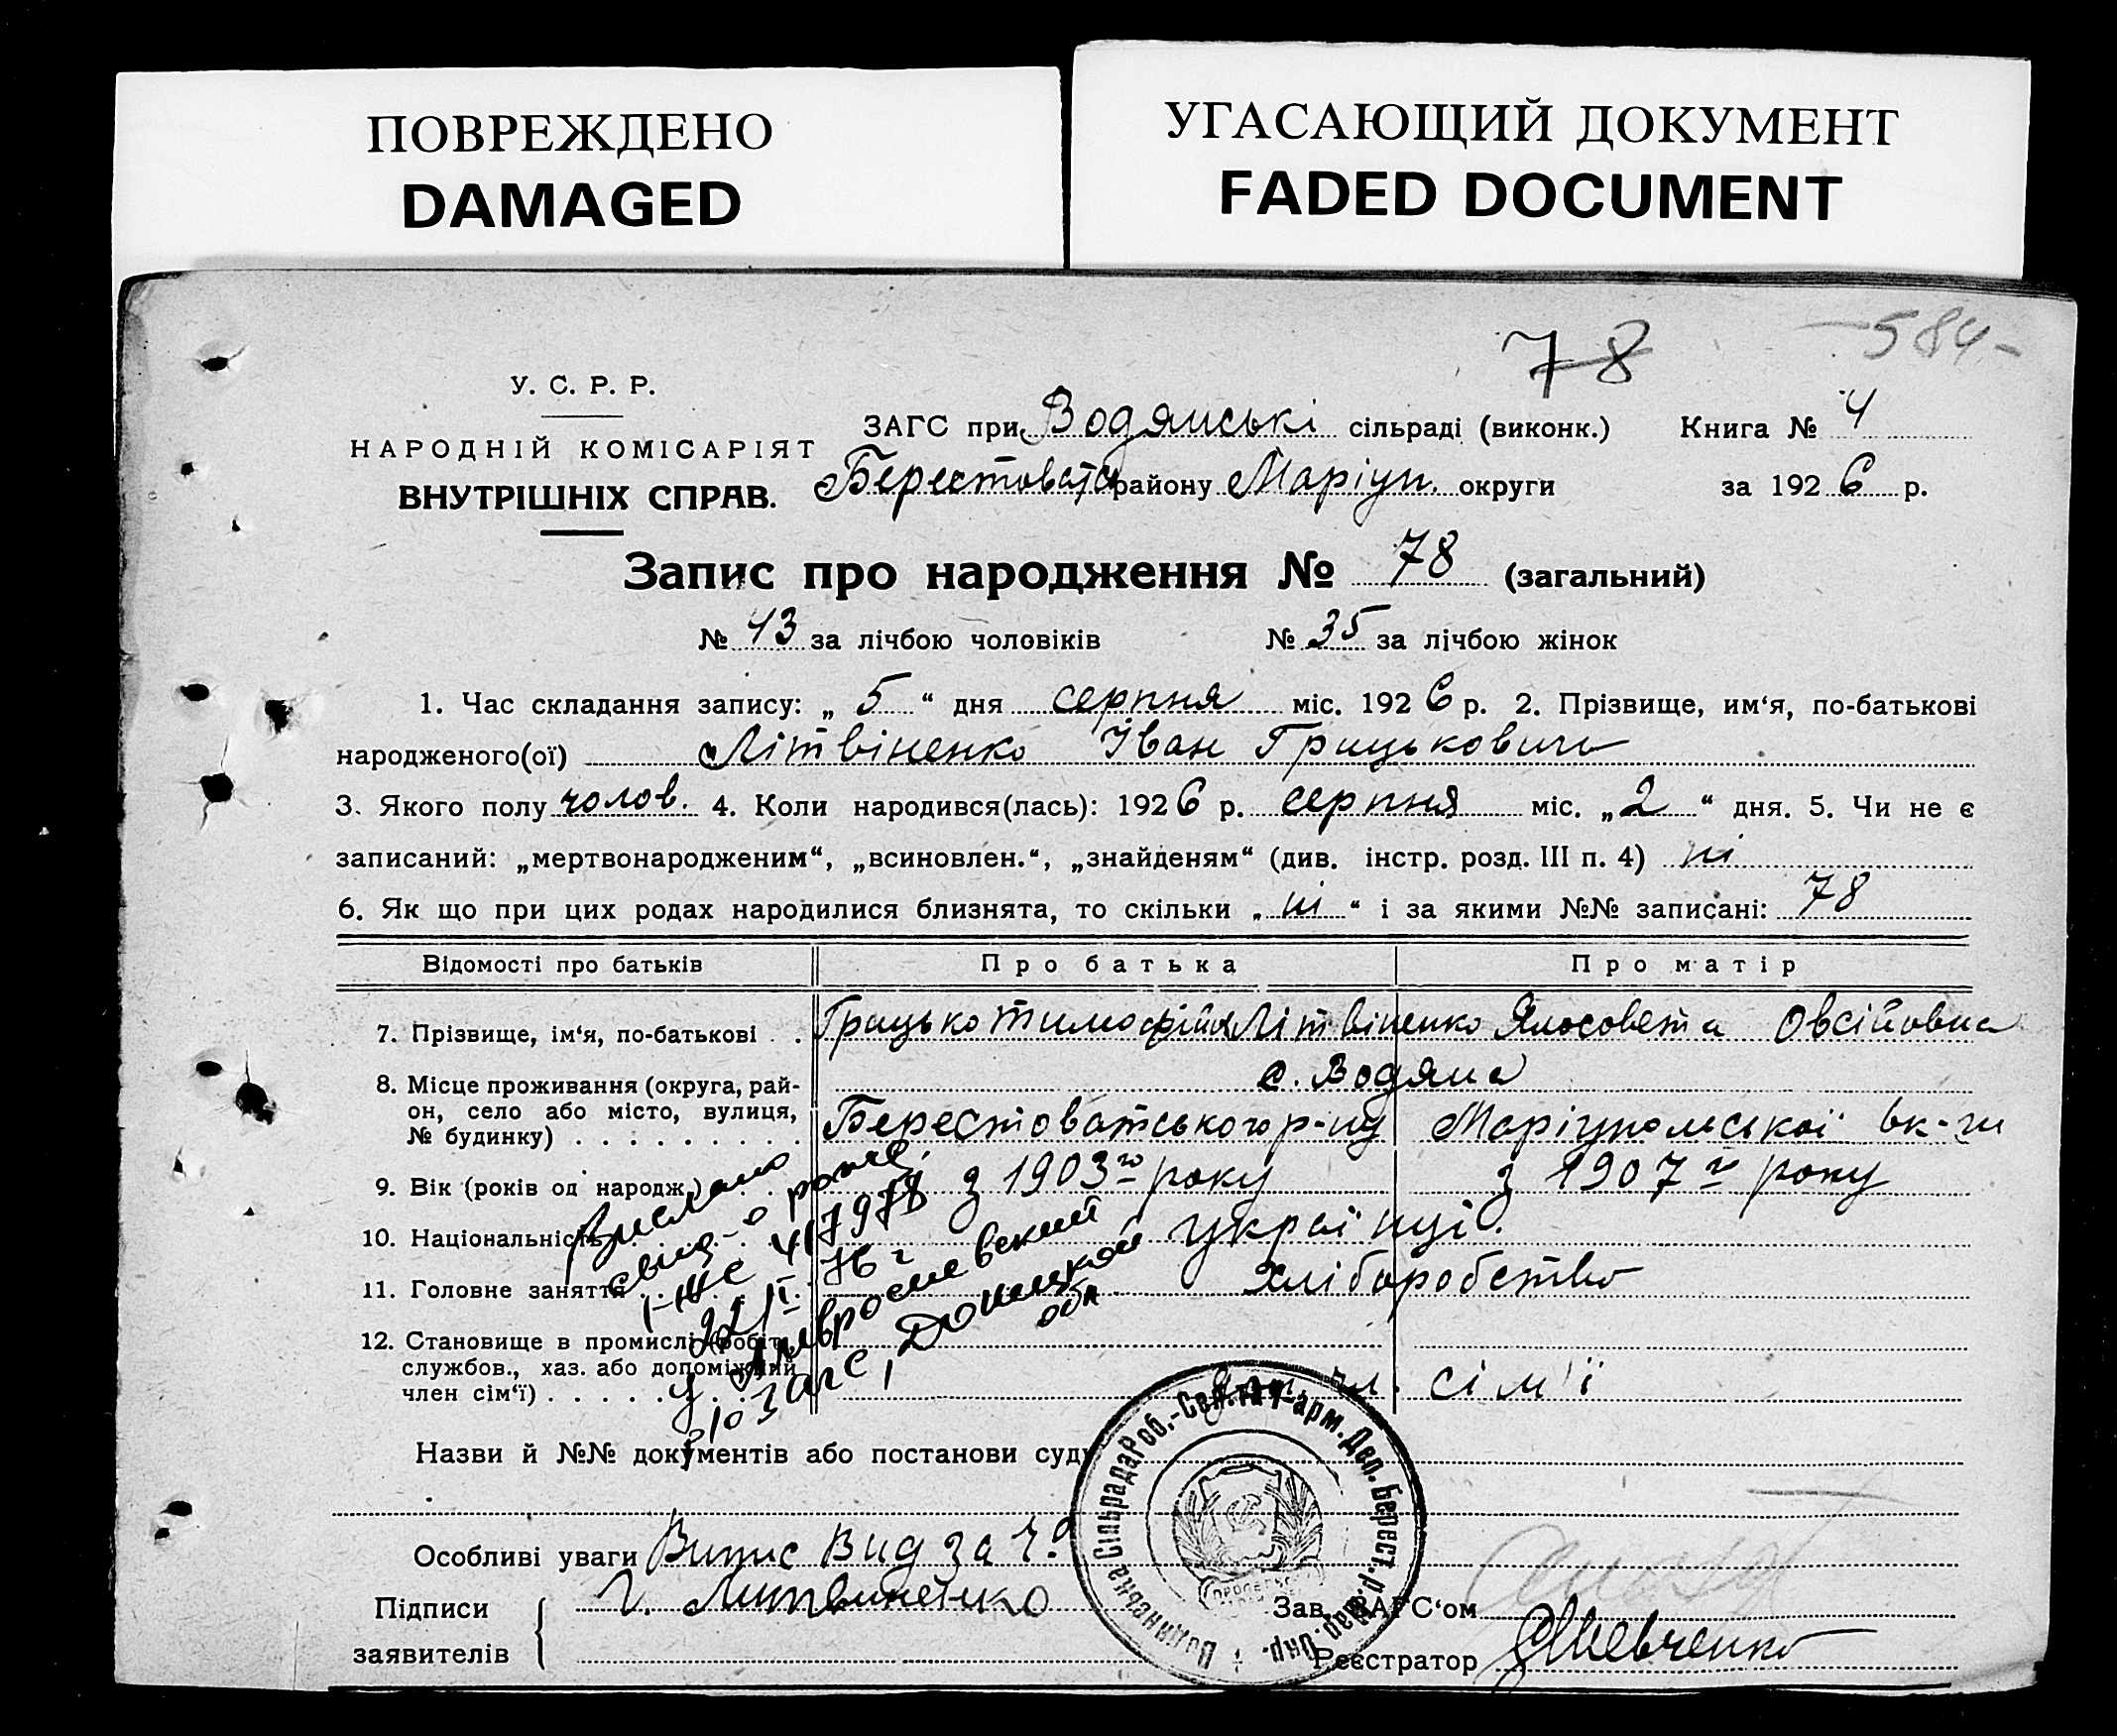 ПОВРЕЖДЕНО
DAMAGED
УГАСАЮЩИЙ ДОКУМЕНТ
FADED DOCUMENT
78
584
У. С. Р. Р.
НАРОДНІЙ КОМІСАРІЯТ
ВНУТРІШНІХ СПРАВ.
ЗАГС при Водянські сільраді (виконк.) Книга № 4
району Маріуп. округи за 1926 р.
Запис про народження № 78 (загальний)
№ 43 за лічбою чоловіків № 35 за лічбою жінок
1. Час складання запису: „ 5 “ дня серпня міс. 1926 р. 2. Прізвище, им‘я, по-батькові
народженого(ої) Літвіненко Іван Грицькович
3. Якого полу чолов. 4. Коли народився(лась): 1926 р. серпня міс. „ 2 “ дня. 5. Чи не є
записаний: „мертвонародженим“, „всиновлен.“, „знайденям“ (див. інстр. розд. III п. 4) ні
6. Як що при цих родах народилися близнята, то скільки „ ні “ і за якими №№ записані: 78
Відомості про батьків Про батька Про матір
7. Прізвище, ім‘я, по-батькові . . Грицько Літвіненко Овсіївна
8. Місце проживання (округа, рай-
он, село або місто, вулиця,
№ будинку) . . . . . . . . .
с. Водяна
Берестоватського р-ну Маріупольської ок-ги
9. Вік (років од народж.) з 1903го року з 1907го року
10. Національність українці.
11. Головне заняття хліборобство
12. Становище в промислі (робітн.
службов., хаз. або допоміжний
член сім‘ї) . . . . . чл. сім'ї
Вислано
22/I 76 г
ЗАГС, Донецкой
обл
Назви й №№ документів або постанови суду
Особливі уваги Випис вид за
Підписи
заявителів
Г. Литвиненко
Зав. ЗАГС‘ом
Реєстратор Шевченко
Водянська СільрадаРоб.-Сел. та Ч-арм. Деп. Берест. р. Мар. Окр.